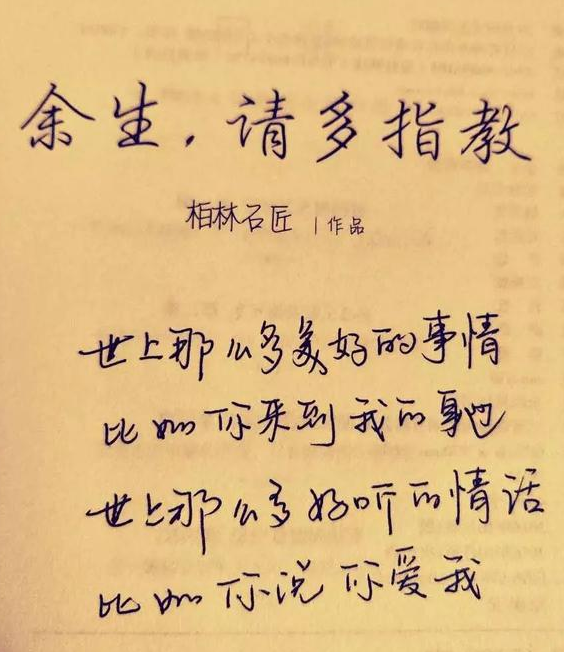 余生，请多指教
柏林石匠 | 作品
世上那么多美好的事情
比如你来到我的身边
世上那么多好听的情话
比如你说你爱我